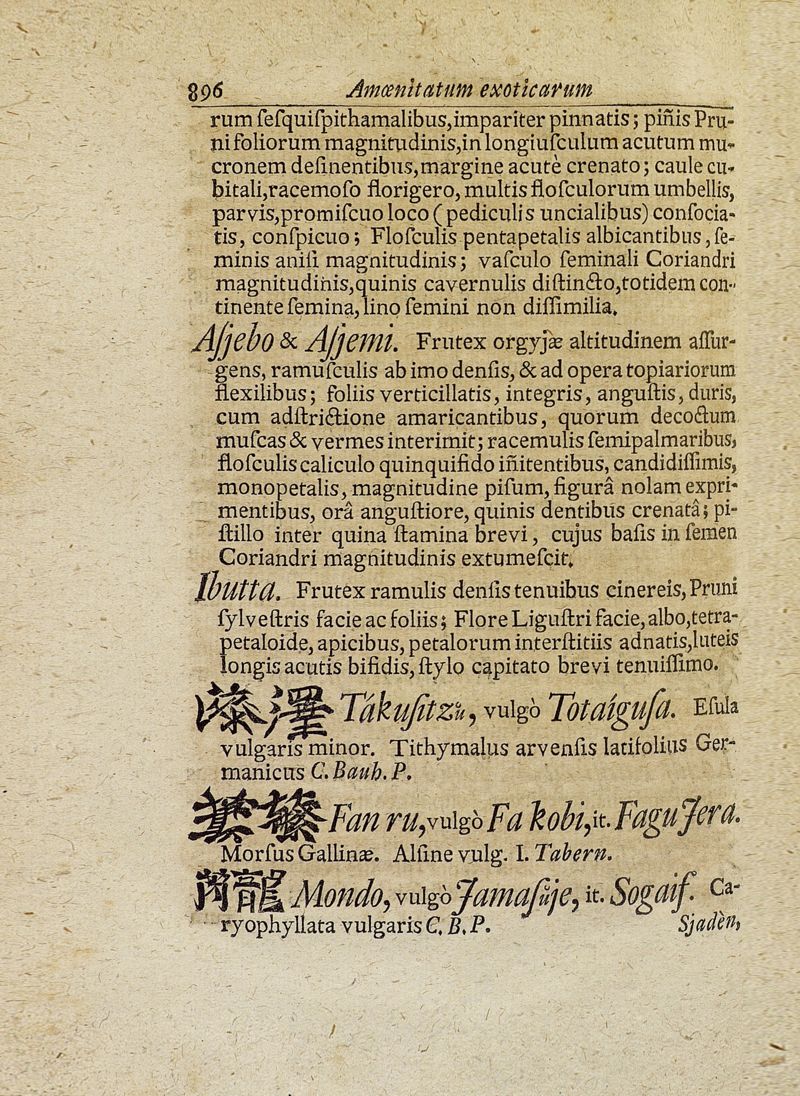 896 Amœnitatum exoticarum
rum ſeſquiſpithamalibus,impariter pinnatis; piñis Pru-
ni foliorum magnitudinis,in longiuſculum acutum mu-
cronem deſinentibus,margine acutè crenato; caule cu-
bitali,racemoſo florigero, multis floſculorum umbellis,
parvis,promiſcuo loco (pediculis uncialibus) conſocia-
tis, conſpicuo; Floſculis pentapetalis albicantibus, ſe-
minis aniſi magnitudinis; vaſculo ſeminali Coriandri
magnitudinis,quinis cavernulis diſtincto,totidem con-
tinente ſemina, lino ſemini non diſſimilia.
Aſjebo & Aſjemi. Frutex orgyjæ altitudinem aſſur-
gens, ramuſculis ab imo denſis, & ad opera topiariorum
flexilibus; foliis verticillatis, integris, anguſtis, duris,
cum adſtrictione amaricantibus, quorum decoctum
muſcas & vermes interimit; racemulis ſemipalmaribus,
floſculis caliculo quinquifido iñitentibus, candidiſſimis,
monopetalis, magnitudine piſum, figurâ nolam expri-
mentibus, orâ anguſtiore, quinis dentibus crenatâ; pi-
ſtillo inter quina ſtamina brevi, cujus baſis in ſemen
Coriandri magnitudinis extumeſcit.
Ibutta. Frutex ramulis denſis tenuibus cinereis, Pruni
ſylveſtris facie ac foliis; Flore Liguſtri facie, albo,tetra-
petaloide, apicibus, petalorum interſtitiis adnatis,luteis
longis acutis bifidis, ſtylo capitato brevi tenuiſſimo.
澤 Takuſitzu, vulgò Totaiguſa. Eſula
vulgaris minor. Tithymalus arvenſis latifolius Ger-
manicus C. Bauh. P.
蘩 Fan ru,vulgò Fa kobi,it. Fagu Jera.
Morſus Gallinæ. Alſine vulg. I. Tabern.
龍 Mondo, vulgò Jamaſuje, it. Sogaif. Ca-
ryophyllata vulgaris C. B. P. Sjaden,